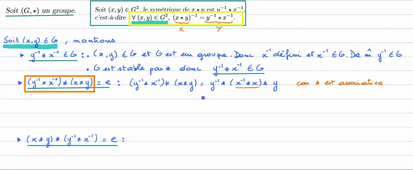 Soit (G,⋆) un groupe.
Soit (x,y) ∈ G², le symétrique de x ⋆ y est y⁻¹ ⋆ x⁻¹
c'est-à-dire ∀(x,y) ∈ G², (x ⋆ y)⁻¹ = y⁻¹ ⋆ x⁻¹.
X Y
Soit (x,y) ∈ G, montrons
▸ y⁻¹ ⋆ x⁻¹ ∈ G : • (x,y) ∈ G et G est un groupe. Donc x⁻¹ défini et x⁻¹ ∈ G. De m̂ y⁻¹ ∈ G
• G est stable par ⋆ donc y⁻¹ ⋆ x⁻¹ ∈ G
▸ (y⁻¹ ⋆ x⁻¹) ⋆ (x ⋆ y) = e : (y⁻¹ ⋆ x⁻¹) ⋆ (x ⋆ y) = y⁻¹ ⋆ (x⁻¹ ⋆ x) ⋆ y car ⋆ est associative
=
▸ (x ⋆ y) ⋆ (y⁻¹ ⋆ x⁻¹) = e :